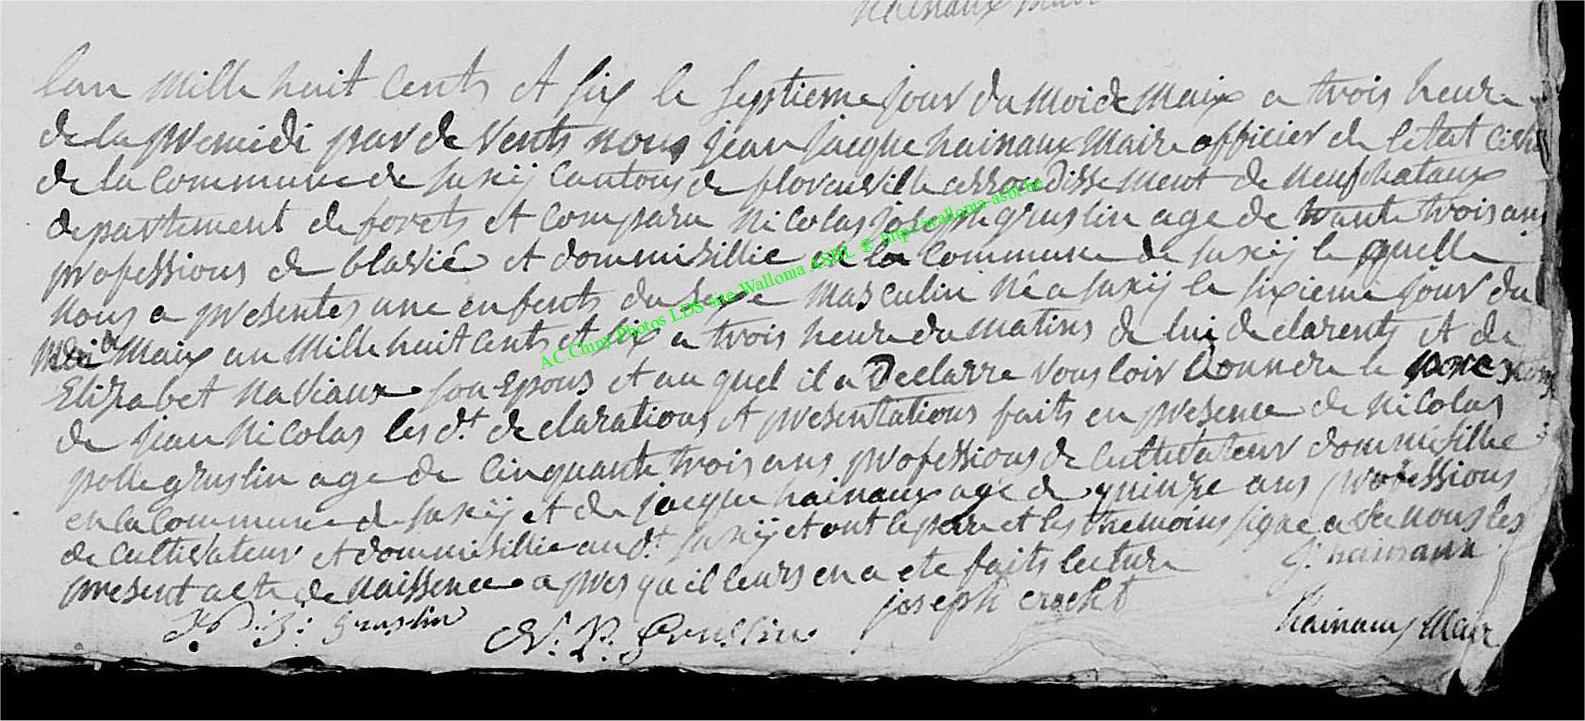 hainaux Mair
lan Mille huit Cents et six le septieme jour du Moi de Maix a trois heure
de la premidi par de Vents nous jean jacque hainaux Maire officier de letat Civil
de la Commune de Juseij Cantons de florenville arrondissement de neufchataux
departement de forets et Compara Nicolas joseph gruslin age de trante trois ans
professions de et dommisillie en la Commune de Juseij le quelle
nous a presentes une enfents du sexe Masculin né a Juseij le sixieme jour du
Moi de Maix an Mille huit Cents et six a trois heure du matins de lui de clarents et de
Elizabet naviaux son Epous et au quel il a Declarre vous loir donner le nom
de jean Nicolas les d.t de clarations et presentations faits en presence de Nicolas
polle gruslin age de Cinquante trois ans professions de Cultivateur dommisillie
en la Commune de Juseij et de jacque hainaux age de quinze ans professions
de Cultivateur et dommisillie au d.t Juseij et ont le pere et les themoins signe avec nous les
present acte de naissence apres qu il leurs en a ete faits lecture
J. hainaux
joseph
gruslin
N. P. Gruslin
hainaux Mair
AC Chiny Photos LDS site Walloma ASBL © http://walloma-asbl.be